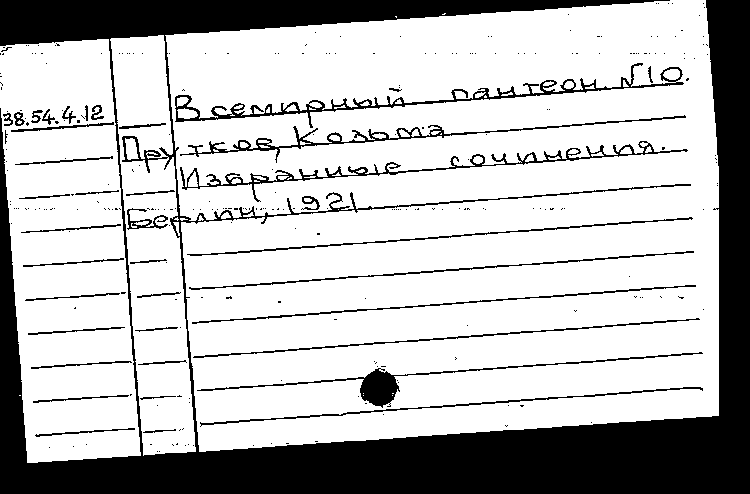 38.54.4.12 Всемирный пантеон. №10.
Прутков, Козьма
Избранные сочинения.
Берлин, 1921.